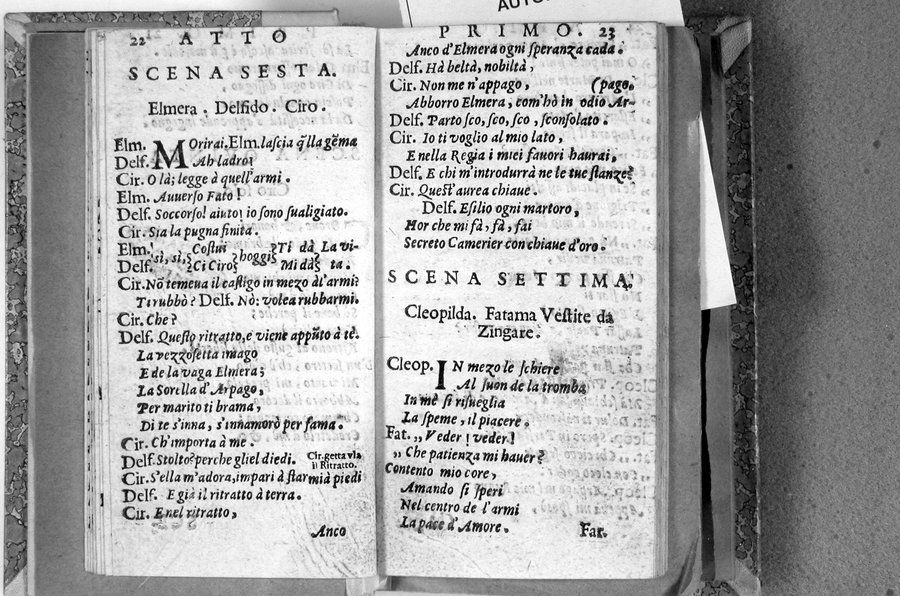 AUTO
22 ATTO
SCENA SESTA.
Elmera. Delfido. Ciro.
Elm. MOrirai, Elm. lascia q̃lla gẽma
Delf. Ah ladro!
Cir. O là; legge à quell'armi.
Elm. Auuerso Fato!
Delf. Soccorso! aiuto! io sono sualigiato.
Cir. Sia la pugna finita.
Elm. sì, sì, Costui hoggi Ti dà La vi-
Delf. Ci Ciro Mi dà ta.
Cir. Nõ temeua il castigo in mezo àl'armi?
Ti rubbò? Delf. Nò: volea rubbarmi.
Cir. Che?
Delf. Questo ritratto, e viene appũto à tè.
La vezzosetta imago
E de la vaga Elmera;
La Sorella d'Arpago,
Per marito ti brama,
Di te s'inna, s'innamorò per fama.
Cir. Ch'importa à me.
Delf. Stolto? perche gliel diedi. Cir. getta via
il Ritratto.
Cir. S'ella m'adora, impari à star mià piedi
Delf. E già il ritratto à terra.
Cir. E nel ritratto,
Anco
PRIMO. 23
Anco d'Elmera ogni speranza cada.
Delf. Hà beltà, nobiltà,
Cir. Non me n'appago, (pago.
Abborro Elmera, com'hò in odio Ar-
Delf. Parto sco, sco, sco, sconsolato.
Cir. Io ti voglio al mio lato,
E nella Regia i miei fauori haurai,
Delf. E chi m'introdurrà ne le tue stanze?
Cir. Quest'aurea chiaue.
Delf. Esilio ogni martoro,
Hor che mi fà, fà, fai
Secreto Camerier con chiaue d'oro.
SCENA SETTIMA.
Cleopilda. Fatama Vestite da
Zingare.
Cleop. IN mezo le schiere
Al suon de la tromba
In mè si risueglia
La speme, il piacere.
Fat. „ Veder! veder!
„ Che patienza mi hauer?
Contento mio core,
Amando si speri
Nel centro de l'armi
La pace d'Amore.
Far.